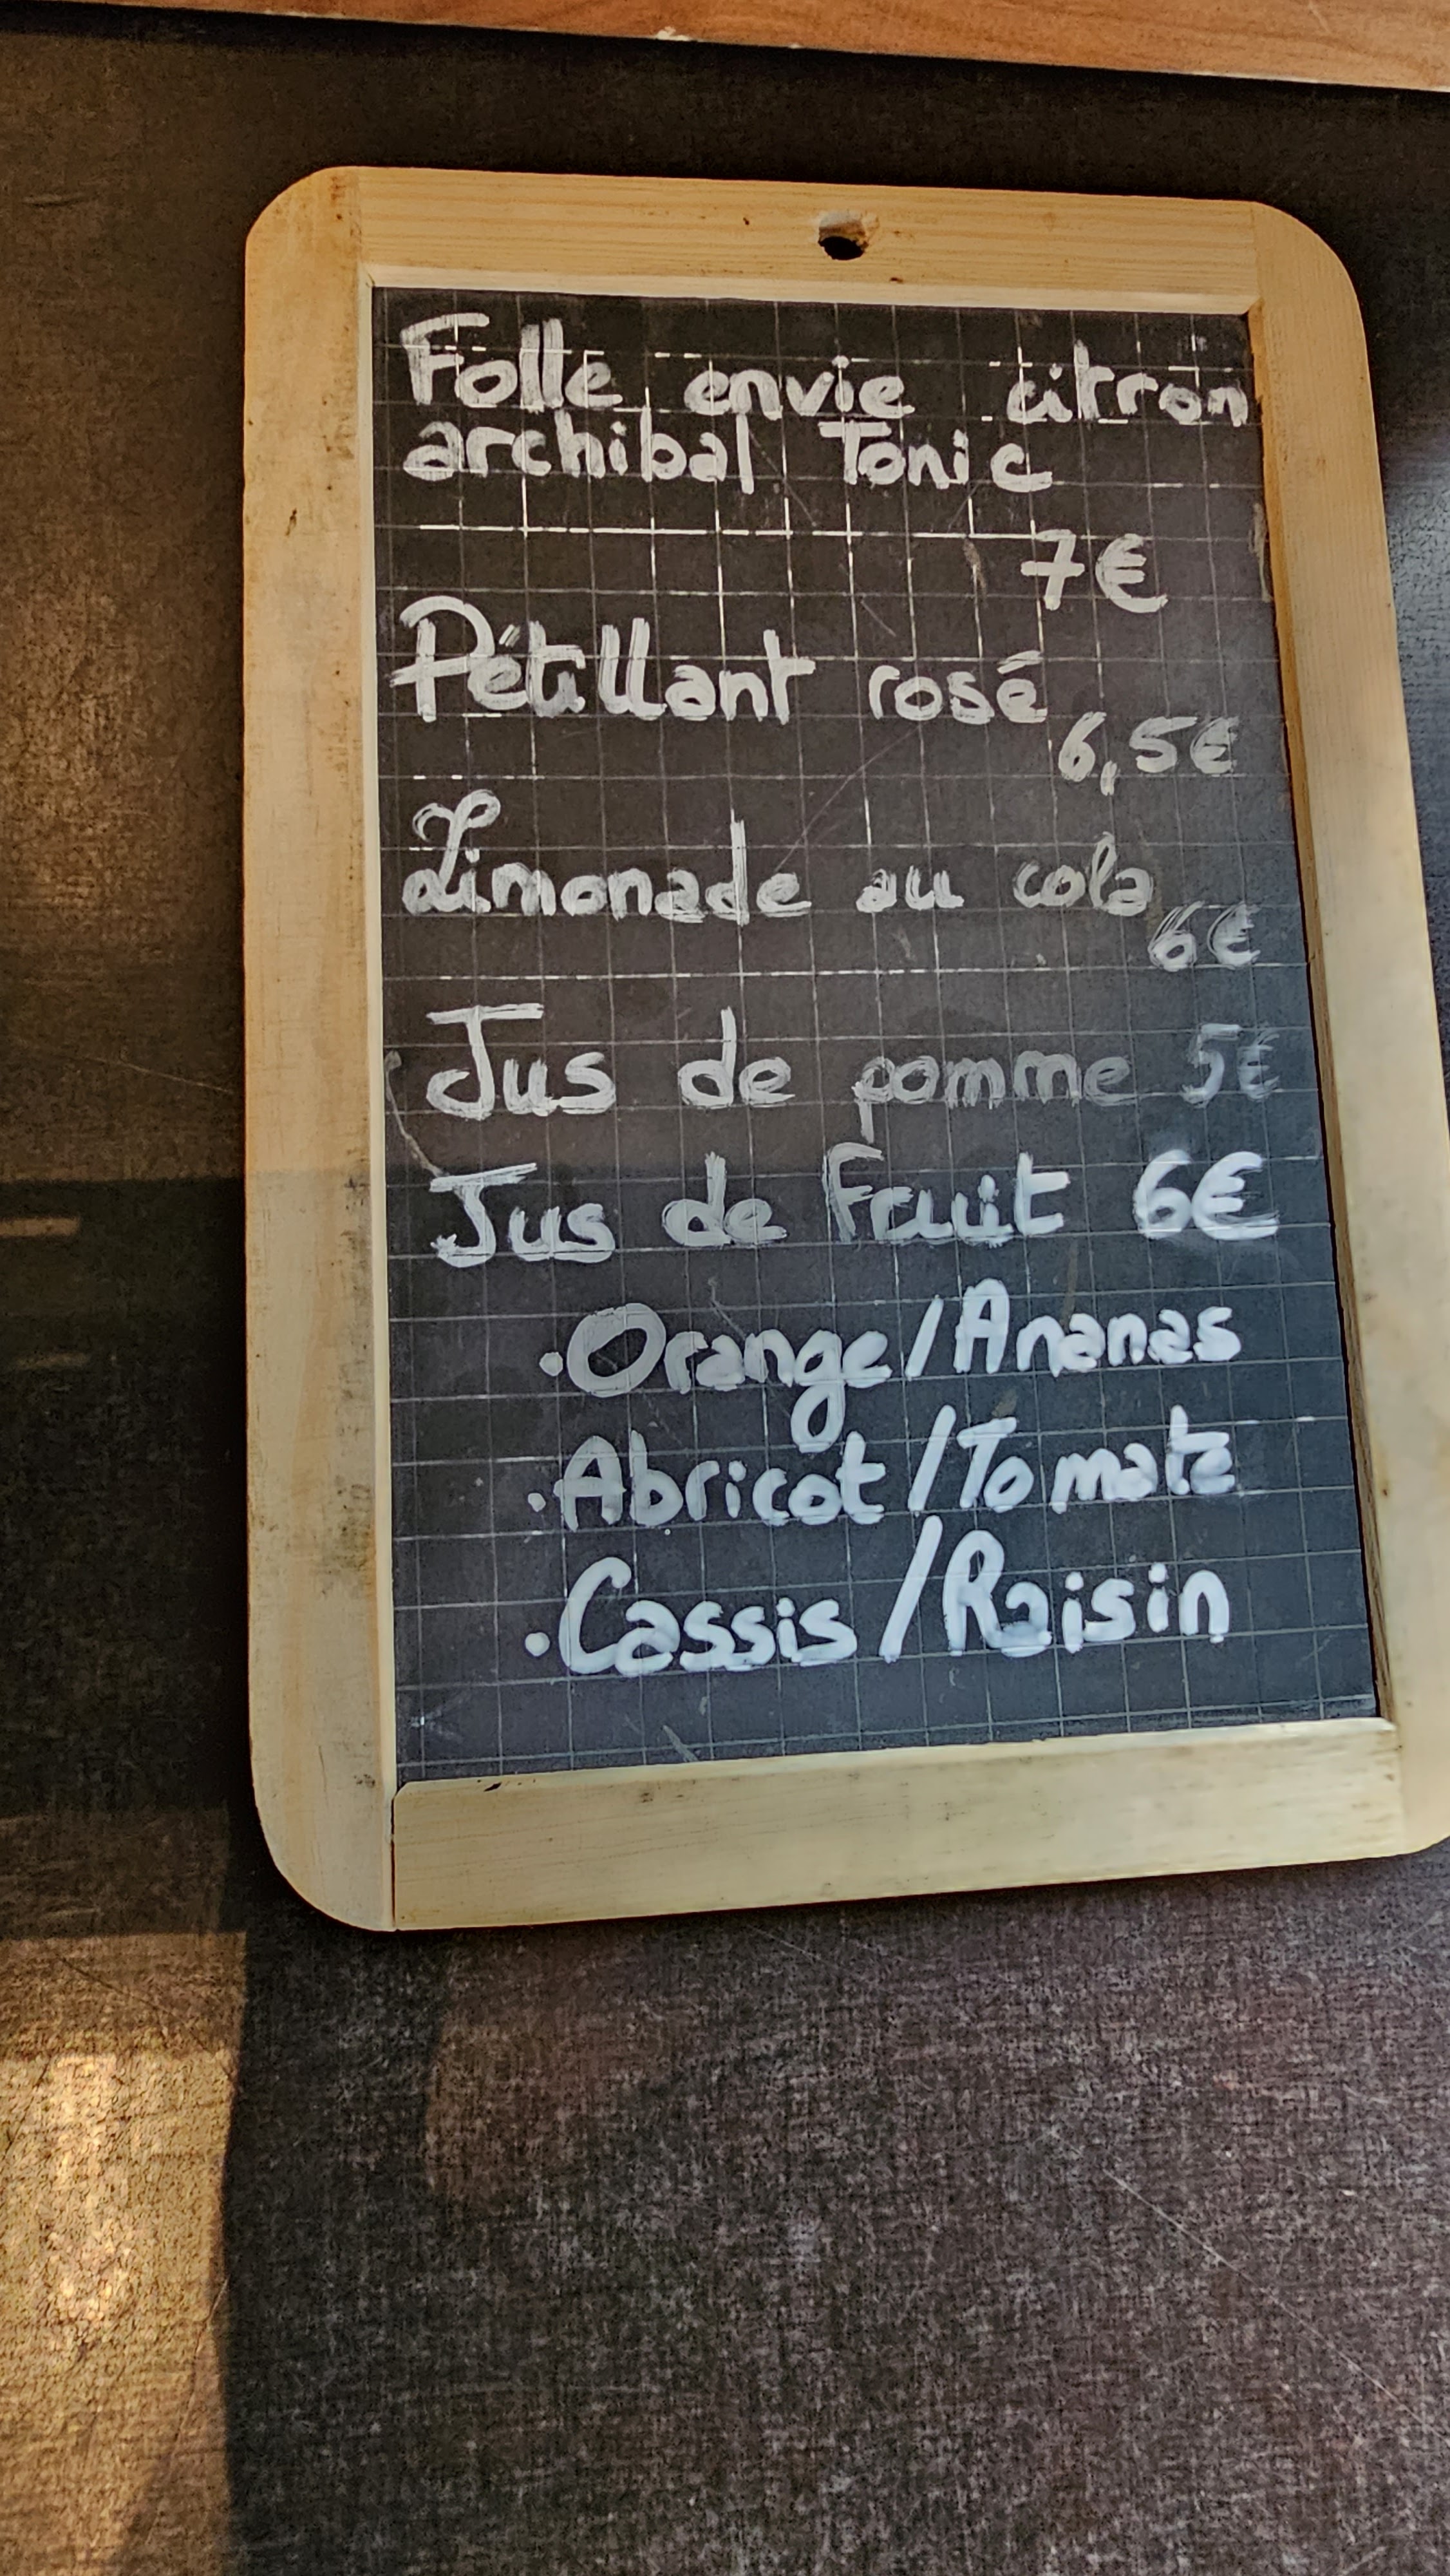 Folle envie citron
archibal Tonic
7€
Pétillant rosé
6,5€
Limonade au cola
6€
Jus de pomme 5€
Jus de Fruit 6€
·Orange/Ananas
·Abricot/Tomate
·Cassis/Raisin